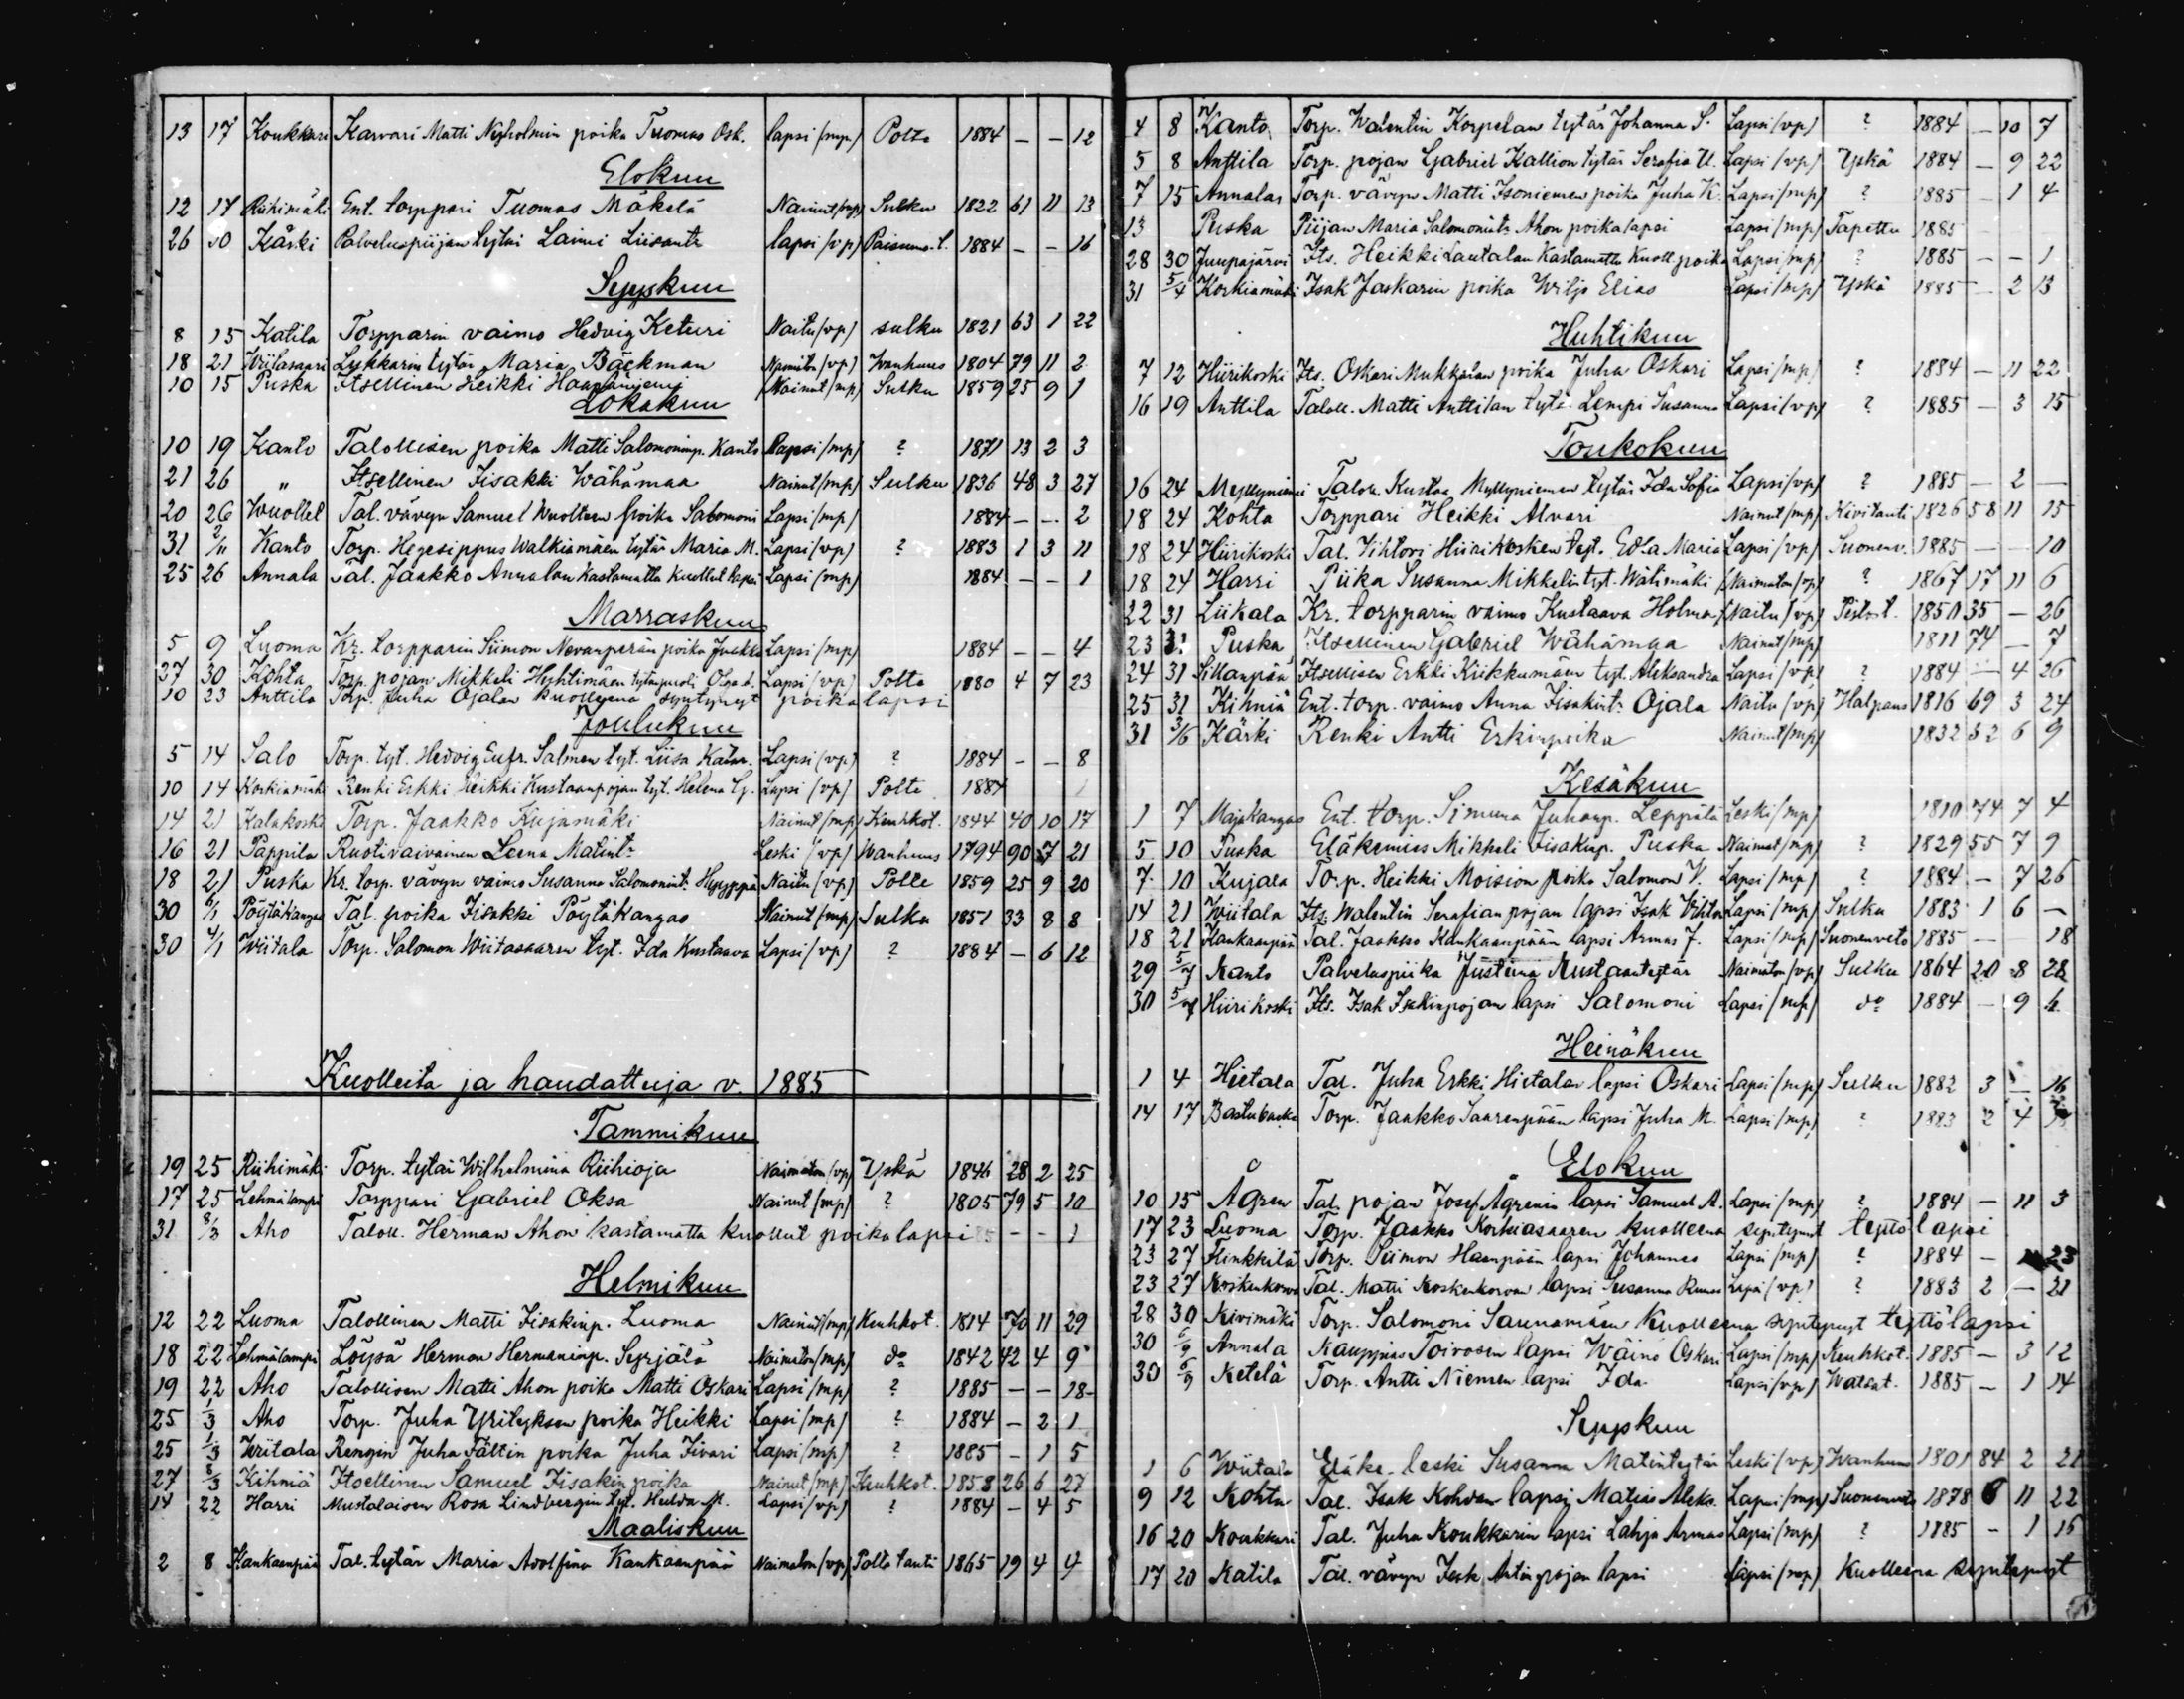 13 17 Koukkari Karvari Matti Nyholmin poika Tuomas Osk. lapsi (mp.) Polte 1884 — — 12
Elokuu
12 17 Riihimäki Ent. torppari Tuomas Mäkelä Nainut (mp) Sulku 1822 61 11 13
26 30 Käski Palveluspiijan tytär Laimi Liisantr lapsi (vp) Paisuma-t. 1884 — — 16
Syyskuu
8 15 Katila Torpparin vaimo Hedvig Keturi Naitu (vp) sulku 1821 63 1 22
18 21 Wiitasaari Lukkarin tytär Maria Bäckman Naimaton (vp) Wanhuus 1804 79 11 2
10 15 Puska Itsellinen Heikki Haapaniemi Nainut (mp) Sulku 1859 25 9 1
Lokakuu
10 19 Kanto Talollisen poika Matti Salomoninp. Kanto Lapsi (mp) ? 1871 13 2 3
21 26 " Itsellinen Iisakki Wähämaa Nainut (mp) Sulku 1836 48 3 27
20 26 Wuollet Tal. vävyn Samuel Wuolteen poika Salomoni Lapsi (mp) 1884 — — 2
31 2/11 Kanto Torp. Hegesippus Walkiamäen tytär Maria M. Lapsi (vp) ? 1883 1 3 11
25 26 Annala Tal. Jaakko Annalan Kastamatta Kuollut lapsi Lapsi (mp) 1884 — — 1
Marraskuu
5 9 Luoma Kr. torpparin Siimon Nevanperän poika Jaakko Lapsi (mp) 1884 — — 4
27 30 Kohta Torp. pojan Mikkeli Huhtimäen tytärpuoli Olga A. Lapsi (vp) Polte 1880 4 7 23
10 23 Anttila Torp. Juha Ojalan kuolleena syntynyt poikalapsi
Joulukuu
5 14 Salo Torp. tyt. Hedvig Eufr. Salmen tyt. Liisa Katar. Lapsi (vp) ? 1884 — — 8
10 14 Korkiamäki Renki Erkki Heikki Kustaanpojan tyt. Helena G. Lapsi (vp) Polte 1884
14 21 Kalakoski Torp. Jaakko Kujamäki Nainut (mp) Keuhkot. 1844 40 10 17
16 21 Pappila Ruotivaivainen Leena Matintr Leski (vp) Wanhuus 1794 90 7 21
18 21 Puska Kr. torp. vävyn vaimo Susanna Salomonint. Hyyppä Naitu (vp) Polte 1859 25 9 20
30 6/1 Pöytäkangas Tal. poika Iisakki Pöytäkangas Nainut (mp) Sulku 1851 33 8 8
30 4/1 Wiitala Torp. Salomon Wiitasaaren tyt. Ida Kustaava Lapsi (vp) ? 1884 — 6 12
Kuolleita ja haudattuja v. 1885
Tammikuu
19 25 Riihimäki Torp. tytär Wilhelmina Riihioja Naimaton (vp) Yskä 1846 28 2 25
17 25 Lehmälampi Torppari Gabriel Oksa Nainut (mp) ? 1805 79 5 10
31 8/3 Aho Taloll. Herman Ahon kastamatta kuollut poikalapsi — — 1
Helmikuu
12 22 Luoma Talollinen Matti Iisakinp. Luoma Nainut (mp) Keuhkot. 1814 70 11 29
18 22 Lehmälampi Löysä Herman Hermaninp. Syrjälä Naimaton (mp) do 1842 42 4 9
19 22 Aho Talollisen Matti Ahon poika Matti Oskari Lapsi (mp) ? 1885 — — 18
25 1/3 Aho Torp. Juha Yrityksen poika Heikki Lapsi (mp) ? 1884 — 2 1
25 1/3 Wiitala Rengin Juha Fältin poika Juha Iivari Lapsi (mp) ? 1885 — 1 5
27 8/3 Kihniä Itsellinen Samuel Iisakinpoika Nainut (mp) Keuhkot. 1858 26 6 27
14 22 Harri Mustalaisen Rosa Lindbergin tyt. Hulda M. Lapsi (vp) ? 1884 — 4 5
Maaliskuu
2 8 Kankaanpää Tal. tytär Maria Adolfina Kankaanpää Naimaton (vp) Polte tauti 1865 19 4 4
4 8 Kanto Torp. Walentin Korpelan tytär Johanna S. Lapsi (vp) ? 1884 — 10 7
5 8 Anttila Torp. pojan Gabriel Kallion tytär Serafia U. Lapsi (vp) Yskä 1884 — 9 22
7 15 Annalas Torp. vävyn Matti Isoniemen poika Juha K. Lapsi (mp) ? 1885 — 1 4
13 Puska Piijan Maria Salomonintr Ahon poikalapsi Lapsi (mp) Tapettu 1885
28 30 Juupajärvi Its. Heikki Lautalan Kastamatta Kuoll. poika Lapsi (mp) ? 1885 — — 1
31 5/4 Korkiamäki Isak Jaskarin poika Wiljo Elias Lapsi (mp) Yskä 1885 — 2 13
Huhtikuu
7 12 Hiirikoski Its. Oskari Mukkalan poika Juha Oskari Lapsi (mp) ? 1884 — 11 22
16 19 Anttila Taloll. Matti Anttilan tytä. Lempi Susanna Lapsi (vp) ? 1885 — 3 15
Toukokuu
16 24 Myllyniemi Talon. Kustaa Myllyniemen tytär Ida Sofia Lapsi (vp) ? 1885 — 2 —
18 24 Kohta Torppari Heikki Alvari Nainut (mp) Kivitauti 1826 58 11 15
18 24 Hiirikoski Tal. Vihtori Hiirikosken tyt. Edla Maria Lapsi (vp) Suonenv. 1885 — — 10
18 24 Harri Piika Susanna Mikkelintyt. Wälimäki Naimaton (vp) ? 1867 17 11 6
22 31 Liikala Kr. torpparin vaimo Kustaava Holma Naitu (vp) Pistost. 1850 35 — 26
23 31 Puska Itsellinen Gabriel Wähämaa Nainut (mp) 1811 74 — 7
24 31 Sillanpää Itsellisen Erkki Kiikkumäen tyt. Aleksandra Lapsi (vp) ? 1884 — 4 26
25 31 Kihniä Ent. torp. vaimo Anna Iisakintr Ojala Naitu (vp) Halpaus 1816 69 3 24
31 3/6 Kärki Renki Antti Erkinpoika Nainut (mp) 1832 52 6 9
Kesäkuu
1 7 Majakangas Ent. torp. Simuna Juhanp. Leppälä Leski (mp) 1810 74 7 4
5 10 Puska Eläkemies Mikkeli Iisakinp. Puska Nainut (mp) ? 1829 55 7 9
7 10 Kujala Torp. Heikki Moision poika Salomon V. Lapsi (mp) ? 1884 — 7 26
14 21 Wiitala Its. Walentin Serafianpojan lapsi Isak Vihtor Lapsi (mp) Sulku 1883 1 6 —
18 21 Kankaanpää Tal. Jaakko Kankaanpään lapsi Armas J. Lapsi (mp) Suonenveto 1885 — 18
29 5/7 Kanto Palveluspiika Justiina Kustaantytär Naimaton (vp) Sulku 1864 20 8 28
30 5/7 Hiirikoski Its. Isak Isakinpojan lapsi Salomoni Lapsi (mp) do 1884 — 9 4
Heinäkuu
1 4 Hietala Tal. Juha Erkki Hietalan lapsi Oskari Lapsi (mp) Sulku 1882 3 — 16
14 17 Bastubacka Torp. Jaakko Saarenpään lapsi Juha M. Lapsi (mp) ? 1883 2 4
Elokuu
10 15 Ågren Tal. pojan Josef Ågrenin lapsi Samuel A. Lapsi (mp) ? 1884 — 11 3
17 23 Luoma Torp. Jaakko Korkiasaaren kuolleena syntynyt tyttölapsi
23 27 Hinkkilä Torp. Siimon Haanpään lapsi Johannes Lapsi (mp) ? 1884 — 23
23 27 Koskenkorva Tal. Matti Koskenkorvan lapsi Susanna Lapsi (vp) ? 1883 2 — 21
28 30 Kivimäki Torp. Salomoni Saunamäen Kuolleena syntynyt tyttölapsi
30 6/9 Annala Kauppias Toivosen lapsi Wäinö Oskari Lapsi (mp) Keuhkot. 1885 — 3 12
30 6/9 Ketelä Torp. Antti Niemen lapsi Ida Lapsi (vp) Watsat. 1885 — 1 14
Syyskuu
1 6 Wiitala Eläke-leski Susanna Matintytär Leski (vp) Wanhuus 1801 84 2 21
9 12 Kohta Tal. Isak Kohdan lapsi Matias Aleks. Lapsi (mp) Suonenveto 1878 6 11 22
16 20 Koukkari Tal. Juha Koukkarin lapsi Lahja Armas Lapsi (mp) ? 1885 — 1 15
17 20 Katila Tal. vävyn Isak Antinpojan lapsi Lapsi (mp) Kuolleena syntynyt